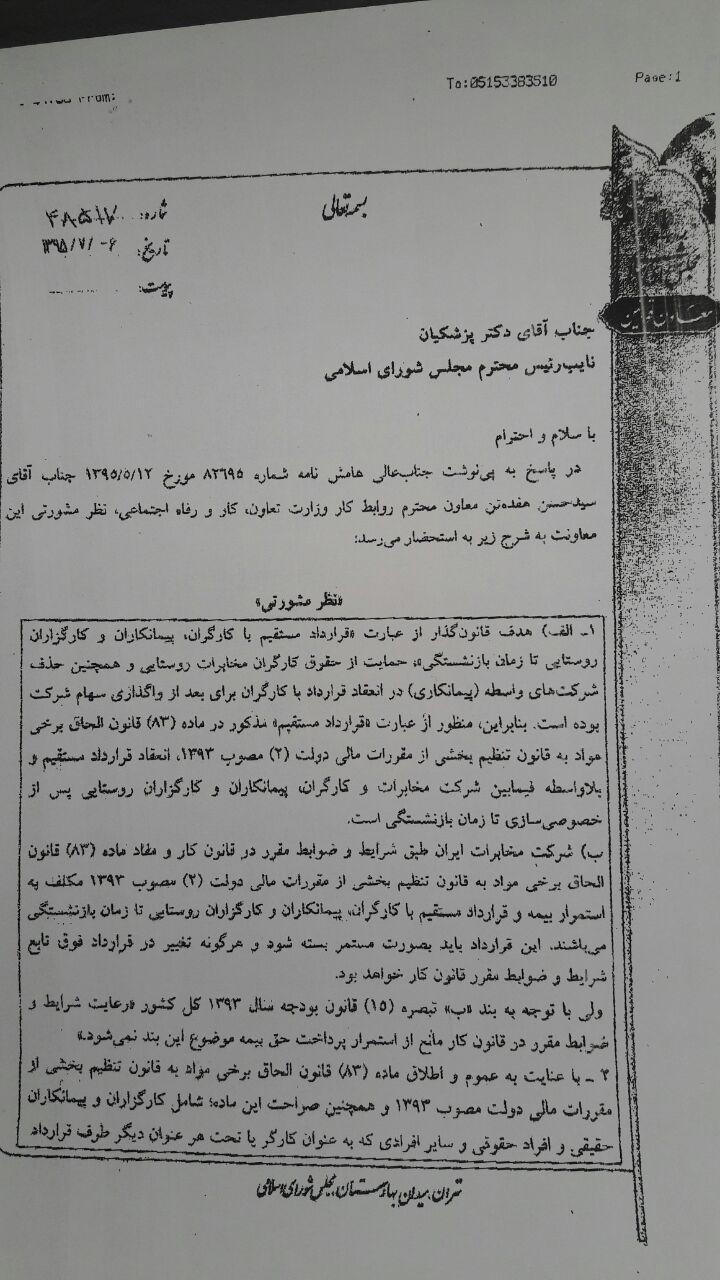 To:05153383510
Page:1
بسمه تعالی
شماره:
تاریخ: ۱۳۹۵/۷/۰۶
پیوست:
معاون قوانین
جناب آقای دکتر پزشکیان
نایب‌رئیس محترم مجلس شورای اسلامی
با سلام و احترام
در پاسخ به پی‌نوشت جناب‌عالی هامش نامه شماره ۸۲۶۹۵ مورخ ۱۳۹۵/۵/۱۲ جناب آقای
سیدحسن هفده‌تن معاون محترم روابط کار وزارت تعاون، کار و رفاه اجتماعی، نظر مشورتی این
معاونت به شرح زیر به استحضار می‌رسد:
«نظر مشورتی»
۱ـ الف) هدف قانون‌گذار از عبارت «قرارداد مستقیم با کارگران، پیمانکاران و کارگزاران
روستایی تا زمان بازنشستگی»، حمایت از حقوق کارگران مخابرات روستایی و همچنین حذف
شرکت‌های واسطه (پیمانکاری) در انعقاد قرارداد با کارگران برای بعد از واگذاری سهام شرکت
بوده است. بنابراین، منظور از عبارت «قرارداد مستقیم» مذکور در ماده (۸۳) قانون الحاق برخی
مواد به قانون تنظیم بخشی از مقررات مالی دولت (۲) مصوب ۱۳۹۳، انعقاد قرارداد مستقیم و
بلاواسطه فیمابین شرکت مخابرات و کارگران، پیمانکاران و کارگزاران روستایی پس از
خصوصی‌سازی تا زمان بازنشستگی است.
ب) شرکت مخابرات ایران طبق شرایط و ضوابط مقرر در قانون کار و مفاد ماده (۸۳) قانون
الحاق برخی مواد به قانون تنظیم بخشی از مقررات مالی دولت (۲) مصوب ۱۳۹۳ مکلف به
استمرار بیمه و قرارداد مستقیم با کارگران، پیمانکاران و کارگزاران روستایی تا زمان بازنشستگی
می‌باشند. این قرارداد باید بصورت مستمر بسته شود و هرگونه تغییر در قرارداد فوق تابع
شرایط و ضوابط مقرر قانون کار خواهد بود.
ولی با توجه به بند «ب» تبصره (۱۵) قانون بودجه سال ۱۳۹۳ کل کشور «رعایت شرایط و
ضوابط مقرر در قانون کار مانع از استمرار پرداخت حق بیمه موضوع این بند نمی‌شود.»
۲ ـ با عنایت به عموم و اطلاق ماده (۸۳) قانون الحاق برخی مواد به قانون تنظیم بخشی از
مقررات مالی دولت مصوب ۱۳۹۳ و همچنین صراحت این ماده؛ شامل کارگزاران و پیمانکاران
حقیقی و افراد حقوقی و سایر افرادی که به عنوان کارگر یا تحت هر عنوان دیگر طرف قرارداد
تهران، میدان بهارستان، مجلس شورای اسلامی